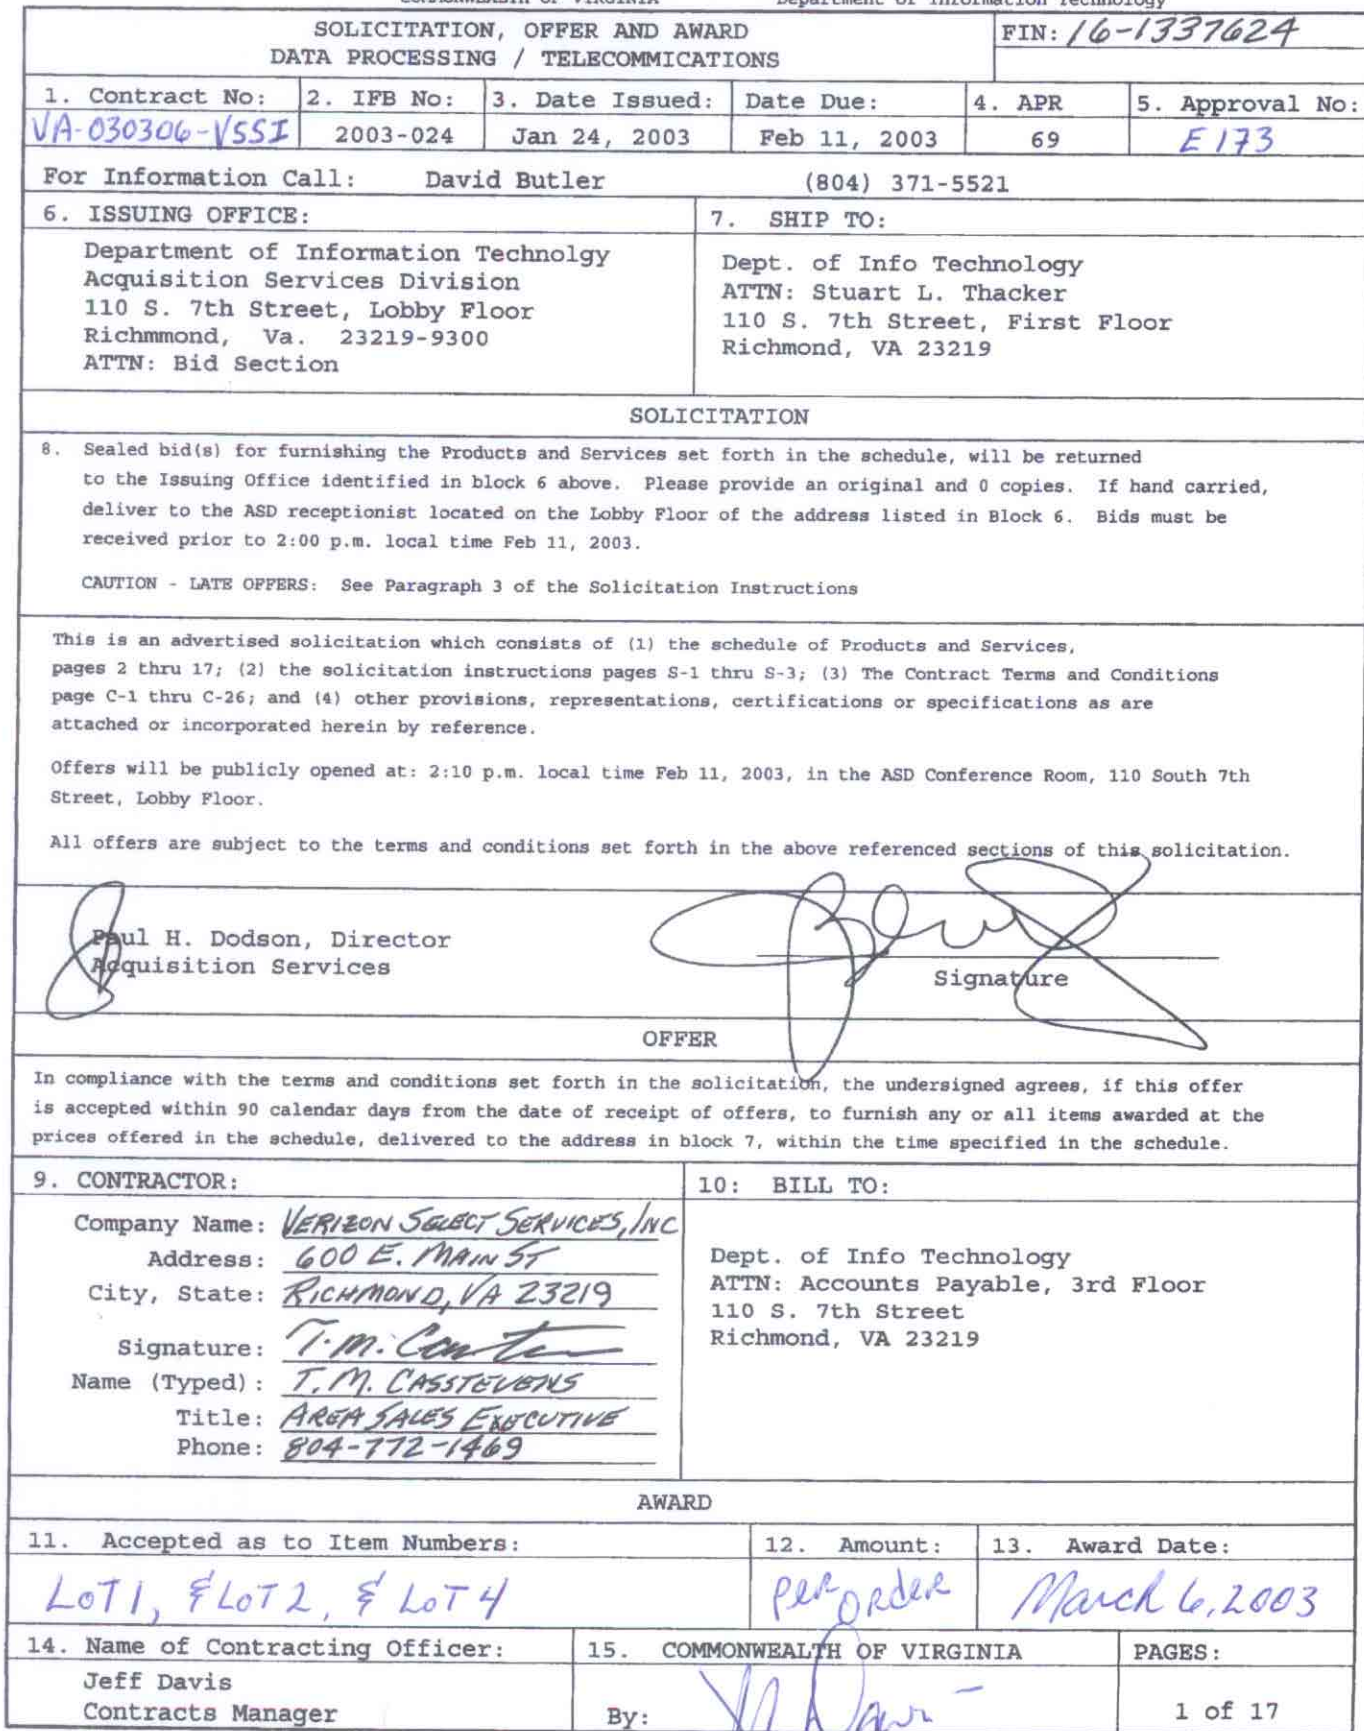 COMMONWEALTH OF VIRGINIA Department of Information Technology
SOLICITATION, OFFER AND AWARD
DATA PROCESSING / TELECOMMICATIONS
FIN: 16-1337624
1. Contract No: 2. IFB No: 3. Date Issued: Date Due: 4. APR 5. Approval No:
VA-030306-VSSI 2003-024 Jan 24, 2003 Feb 11, 2003 69 E173
For Information Call: David Butler (804) 371-5521
6. ISSUING OFFICE:
Department of Information Technolgy
Acquisition Services Division
110 S. 7th Street, Lobby Floor
Richmmond, Va. 23219-9300
ATTN: Bid Section
7. SHIP TO:
Dept. of Info Technology
ATTN: Stuart L. Thacker
110 S. 7th Street, First Floor
Richmond, VA 23219
SOLICITATION
8. Sealed bid(s) for furnishing the Products and Services set forth in the schedule, will be returned
to the Issuing Office identified in block 6 above. Please provide an original and 0 copies. If hand carried,
deliver to the ASD receptionist located on the Lobby Floor of the address listed in Block 6. Bids must be
received prior to 2:00 p.m. local time Feb 11, 2003.
CAUTION - LATE OFFERS: See Paragraph 3 of the Solicitation Instructions
This is an advertised solicitation which consists of (1) the schedule of Products and Services,
pages 2 thru 17; (2) the solicitation instructions pages S-1 thru S-3; (3) The Contract Terms and Conditions
page C-1 thru C-26; and (4) other provisions, representations, certifications or specifications as are
attached or incorporated herein by reference.
Offers will be publicly opened at: 2:10 p.m. local time Feb 11, 2003, in the ASD Conference Room, 110 South 7th
Street, Lobby Floor.
All offers are subject to the terms and conditions set forth in the above referenced sections of this solicitation.
Paul H. Dodson, Director
Acquisition Services
Signature
OFFER
In compliance with the terms and conditions set forth in the solicitation, the undersigned agrees, if this offer
is accepted within 90 calendar days from the date of receipt of offers, to furnish any or all items awarded at the
prices offered in the schedule, delivered to the address in block 7, within the time specified in the schedule.
9. CONTRACTOR:
Company Name: VERIZON SELECT SERVICES, INC
Address: 600 E. MAIN ST
City, State: RICHMOND, VA 23219
Signature: T.M.
Name (Typed): T. M. CASSTEVENS
Title: AREA SALES EXECUTIVE
Phone: 804-772-1469
10: BILL TO:
Dept. of Info Technology
ATTN: Accounts Payable, 3rd Floor
110 S. 7th Street
Richmond, VA 23219
AWARD
11. Accepted as to Item Numbers: 12. Amount: 13. Award Date:
LOT 1, & LOT 2, & LOT 4 per order March 6, 2003
14. Name of Contracting Officer:
Jeff Davis
Contracts Manager
15. COMMONWEALTH OF VIRGINIA
By:
PAGES:
1 of 17